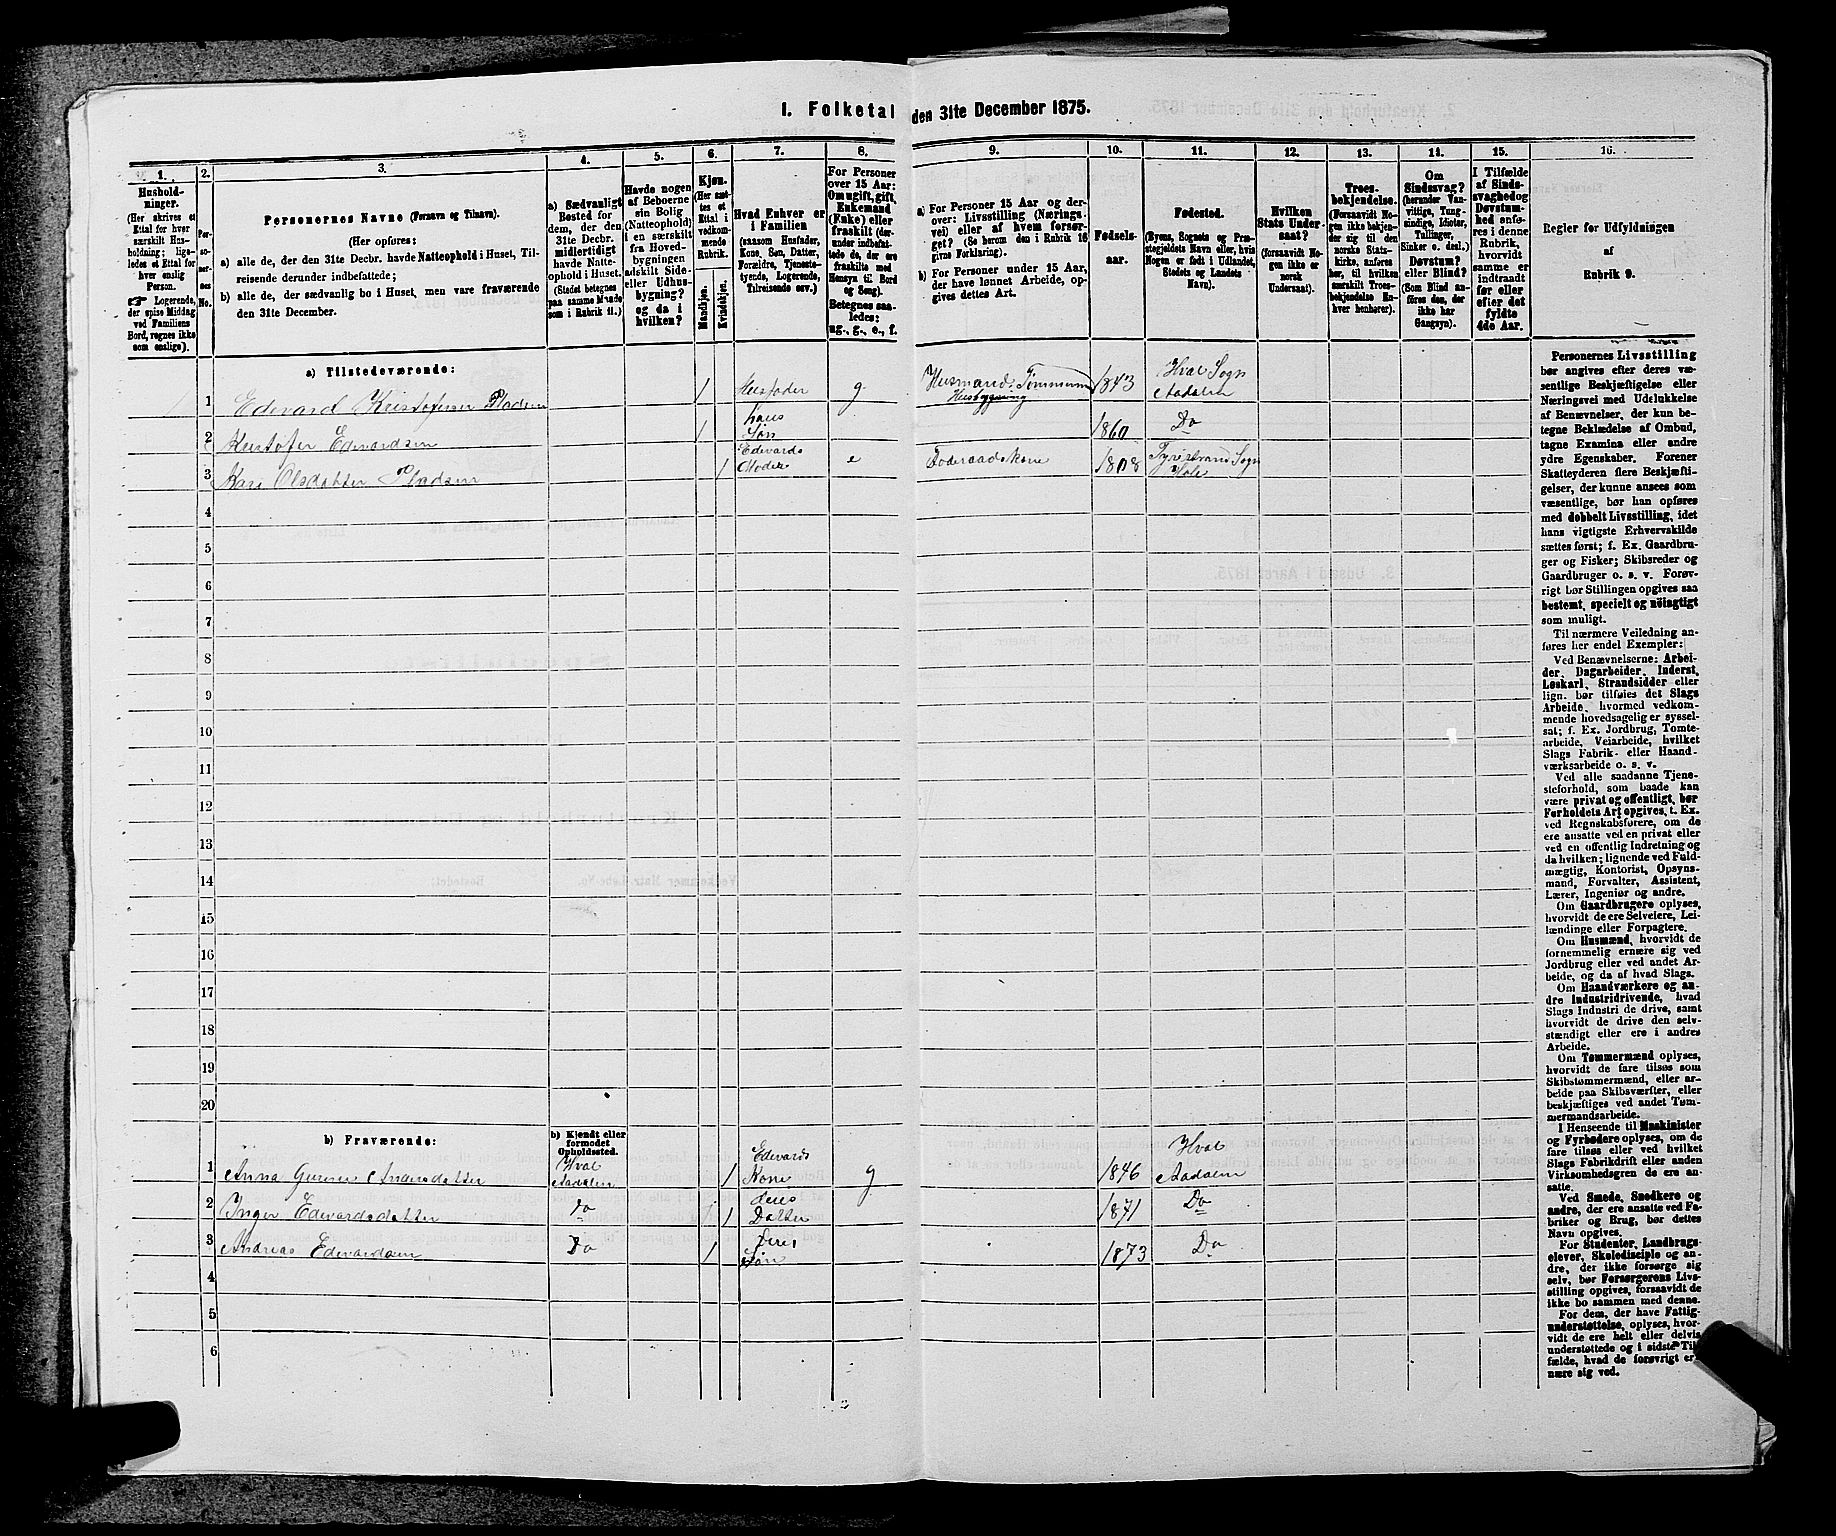 1. Folketal den 31te December 1875.
1.
Hushold-
ninger.
(Her skrives et
Ettal for hver
særskilt Hus-
holdning; liga-
ledes et Ettal for
hver enslig
Person.
Logerende,
der spise Middag
ved Familiens
Bord, regnes ikke
som enslige).
2.
Per-
so-
ner-
nes
No.
3.
Personernes Navne (Fornavn og Tilnavn).
(Her opføres:
a) alle de, der den 31te Decbr. havde Natteophold i Huset, Til-
reisende derunder indbefattede;
b) alle de, der sædvanlig bo i Huset, men vare fraværende
den 31te December.
4.
a) Sædvanligt
Bosted for
dem, der den
31te Decbr.
midlertidigt
havde Natte-
ophold i Huset.
(Stedet betegnes
paa samme Maade
som i Rubrik 11.)
5.
Havde nogen
af Beboerne
sin Bolig
(Natteophold)
i en særskilt
fra Hoved-
bygningen
adskilt Side-
eller Udhus-
bygning?
og da i
hvilken?
6.
Kjøn.
(Her sæt-
tes et
Ettal i
vedkom-
mende
Rubrik.
Mandkjøn.
Kvindekjøn.
7.
Hvad Enhver er
i Familien
(saasom Husfader,
Kone, Søn, Datter,
Forældre, Tjeneste-
tyende, Logerende,
Tilreisende osv.)
8.
For Personer
over 15 Aar:
Om ugift, gift,
Enkemand
(Enke) eller
fraskilt (der-
under indbefat-
tede de, der
ere fraskilte med
Hensyn til Bord
og Seng).
Betegnes saa-
ledes:
ug., g., e., f.
9.
a) For Personer 15 Aar og der-
over: Livsstilling (Nærings-
vei) eller af hvem forsør-
get? (Se herom den i Rubrik 16
givne Forklaring).
b) For Personer under 15 Aar,
der have lønnet Arbeide, op-
gives dettes Art.
10.
Fødsels-
aar.
11.
Fødested.
(Byens, Sognets og Præ-
stegjeldets Navn eller, hvis
Nogen er født i Udlandet,
Stedets og Landets
Navn).
12.
Hvilken
Stats Under-
saat?
(forsaavidt No-
gen ikke er
norsk
Undersaat).
13.
Troes-
bekjendelse.
(Forsaavidt No-
gen ikke bekjen-
der sig til den
norske Stats-
kirke, anføres
her, til hvilken
særskilt Troes-
bekjendelse En-
hver henhører).
14.
Om
Sindssvag?
(herunder Van-
vittige, Tung-
sindige, Idioter,
Tullinger,
Sinker o. desl.)
Døvstum?
eller Blind?
(Som Blind an-
føres den, der
ikke har
Gangsyn).
15.
I Tilfælde
af Sinds-
svaghed og
Døvstum-
hed anfø-
res i denne
Rubrik,
hvorvidt
samme er
indtraadt
før eller
efter det
fyldte
4de Aar.
16.
Regler for Udfyldningen
af
Rubrik 9.
a) Tilstedeværende:
1 Edevard Kristofersen Pladsen 1 Husfader g Husmand, Tømmerm Husbygning 1843 Hval Sogn Aadalen
2 Kristofer Edevardsen 1 hans Søn 1860 Do
3 Kari Olsdatter Pladsen 1 Edevards Moder e Føderaadskone 1808 Tyristrand Sogn Hole
4
5
6
7
8
9
10
11
12
13
14
15
16
17
18
19
20
b) Fraværende:
b) Kjendt eller
formodet
Opholdssted.
1 Anna Andersdatter Hval Aadalen 1 Edevards Kone g 1846 Hval Aadalen
2 Inger Edevardsdatter Do 1 deres Datter 1871 Do
3 Andreas Edevardsen Do 1 deres Søn 1873 Do
4
5
6
Personernes Livsstilling
bør angives efter deres væ-
sentlige Beskjæftigelse eller
Næringsvei med Udelukkelse
af Benævnelser, der kun be-
tegne Beklædelse af Ombud,
tagne Examina eller andre
ydre Egenskaber. Forener
Skatteyderen flere Beskjæfti-
gelser, der kunne ansees som
væsentlige, bør han opføres
med dobbelt Livsstilling, idet
hans vigtigste Erhvervskilde
sættes først; f. Ex. Gaardbru-
ger og Fisker; Skibsreder og
Gaardbruger o. s. v. Forøv-
rigt bør Stillingen opgives saa
bestemt, specielt og nöiagtigt
som muligt.
Til nærmere Veiledning an-
føres her endel Exempler:
Ved Benævnelserne: Arbei-
der, Dagarbeider, Inderst,
Løskarl, Strandsidder eller
lign. bør tilføies det Slags
Arbeide, hvormed vedkom-
mende hovedsagelig er syssel-
sat; f. Ex. Jordbrug, Tomte-
arbeide, Veiarbeide, hvilket
Slags Fabrik- eller Haand-
værksarbeide o. s. v.
Ved alle saadanne Tjene-
steforhold, som baade kan
være privat og offentligt, bør
Forholdets Art opgives, t. Ex.
ved Regnskabsførere, om de
ere ansatte ved en privat eller
ved en offentlig Indretning og
da hvilken; lignende ved Fuld-
mægtig, Kontorist, Opsyns-
mand, Forvalter, Assistent,
Lærer, Ingeniør og andre.
Om Gaardbrugere oplyses,
hvorvidt de ere Selveiere, Lei-
lændinge eller Forpagtere.
Om Husmænd, hvorvidt de
fornemmelig ernære sig ved
Jordbrug eller ved andet Ar-
beide, og da af hvad Slags.
Om Haandværkere og an-
dre Industridrivende, hvad
Slags Industri de drive, samt
hvorvidt de drive den selv-
stændigt eller ere i andres
Arbeide.
Om Tømmermænd oplyses,
hvorvidt de fare tilsøs som
Skibstømmermænd, eller ar-
beide paa Skibsværfter, eller
beskjæftiges ved andet Tøm-
mermandsarbeide.
I Henseende til Maskinister
og Fyrbødere oplyses, om de
fare tilsøs eller ved hvilket
Slags Fabrikdrift eller anden
Virksomhedsgren de ere an-
satte.
Ved Smede, Snedkere og
andre, der ere ansatte ved Fa-
briker og Brug, bør dettes
Navn opgives.
For Studenter, Landbrugs-
elever, Skoledisciple og an-
dre, der ikke forsørge sig
selv, bør Forsørgerens Livs-
stilling opgives, forsaavidt de
ikke bo sammen med denne.
For dem, der have Fattig-
understøttelse, oplyses, hvor-
vidt de ere helt eller delvis
understøttede og i sidste Til-
fælde, hvad de forøvrigt er-
nære sig ved.